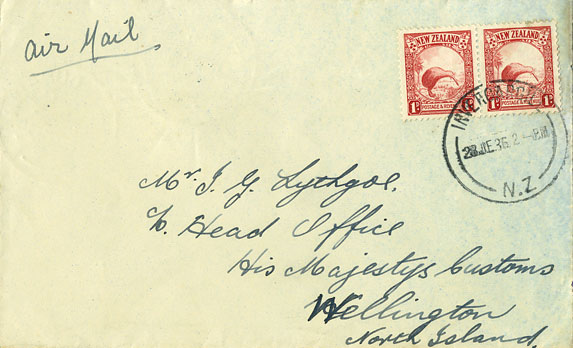 Air Mail
NEW ZEALAND NEW ZEALAND
1D 1D 1D 1D
POSTAGE & REVENUE POSTAGE & REVENUE
INVERCARGILL
JE 35 2 - PM
N.Z
Mr. J. G. Lythgoe.
℅ Head Office
His Majestys Customs
Wellington
North Island.